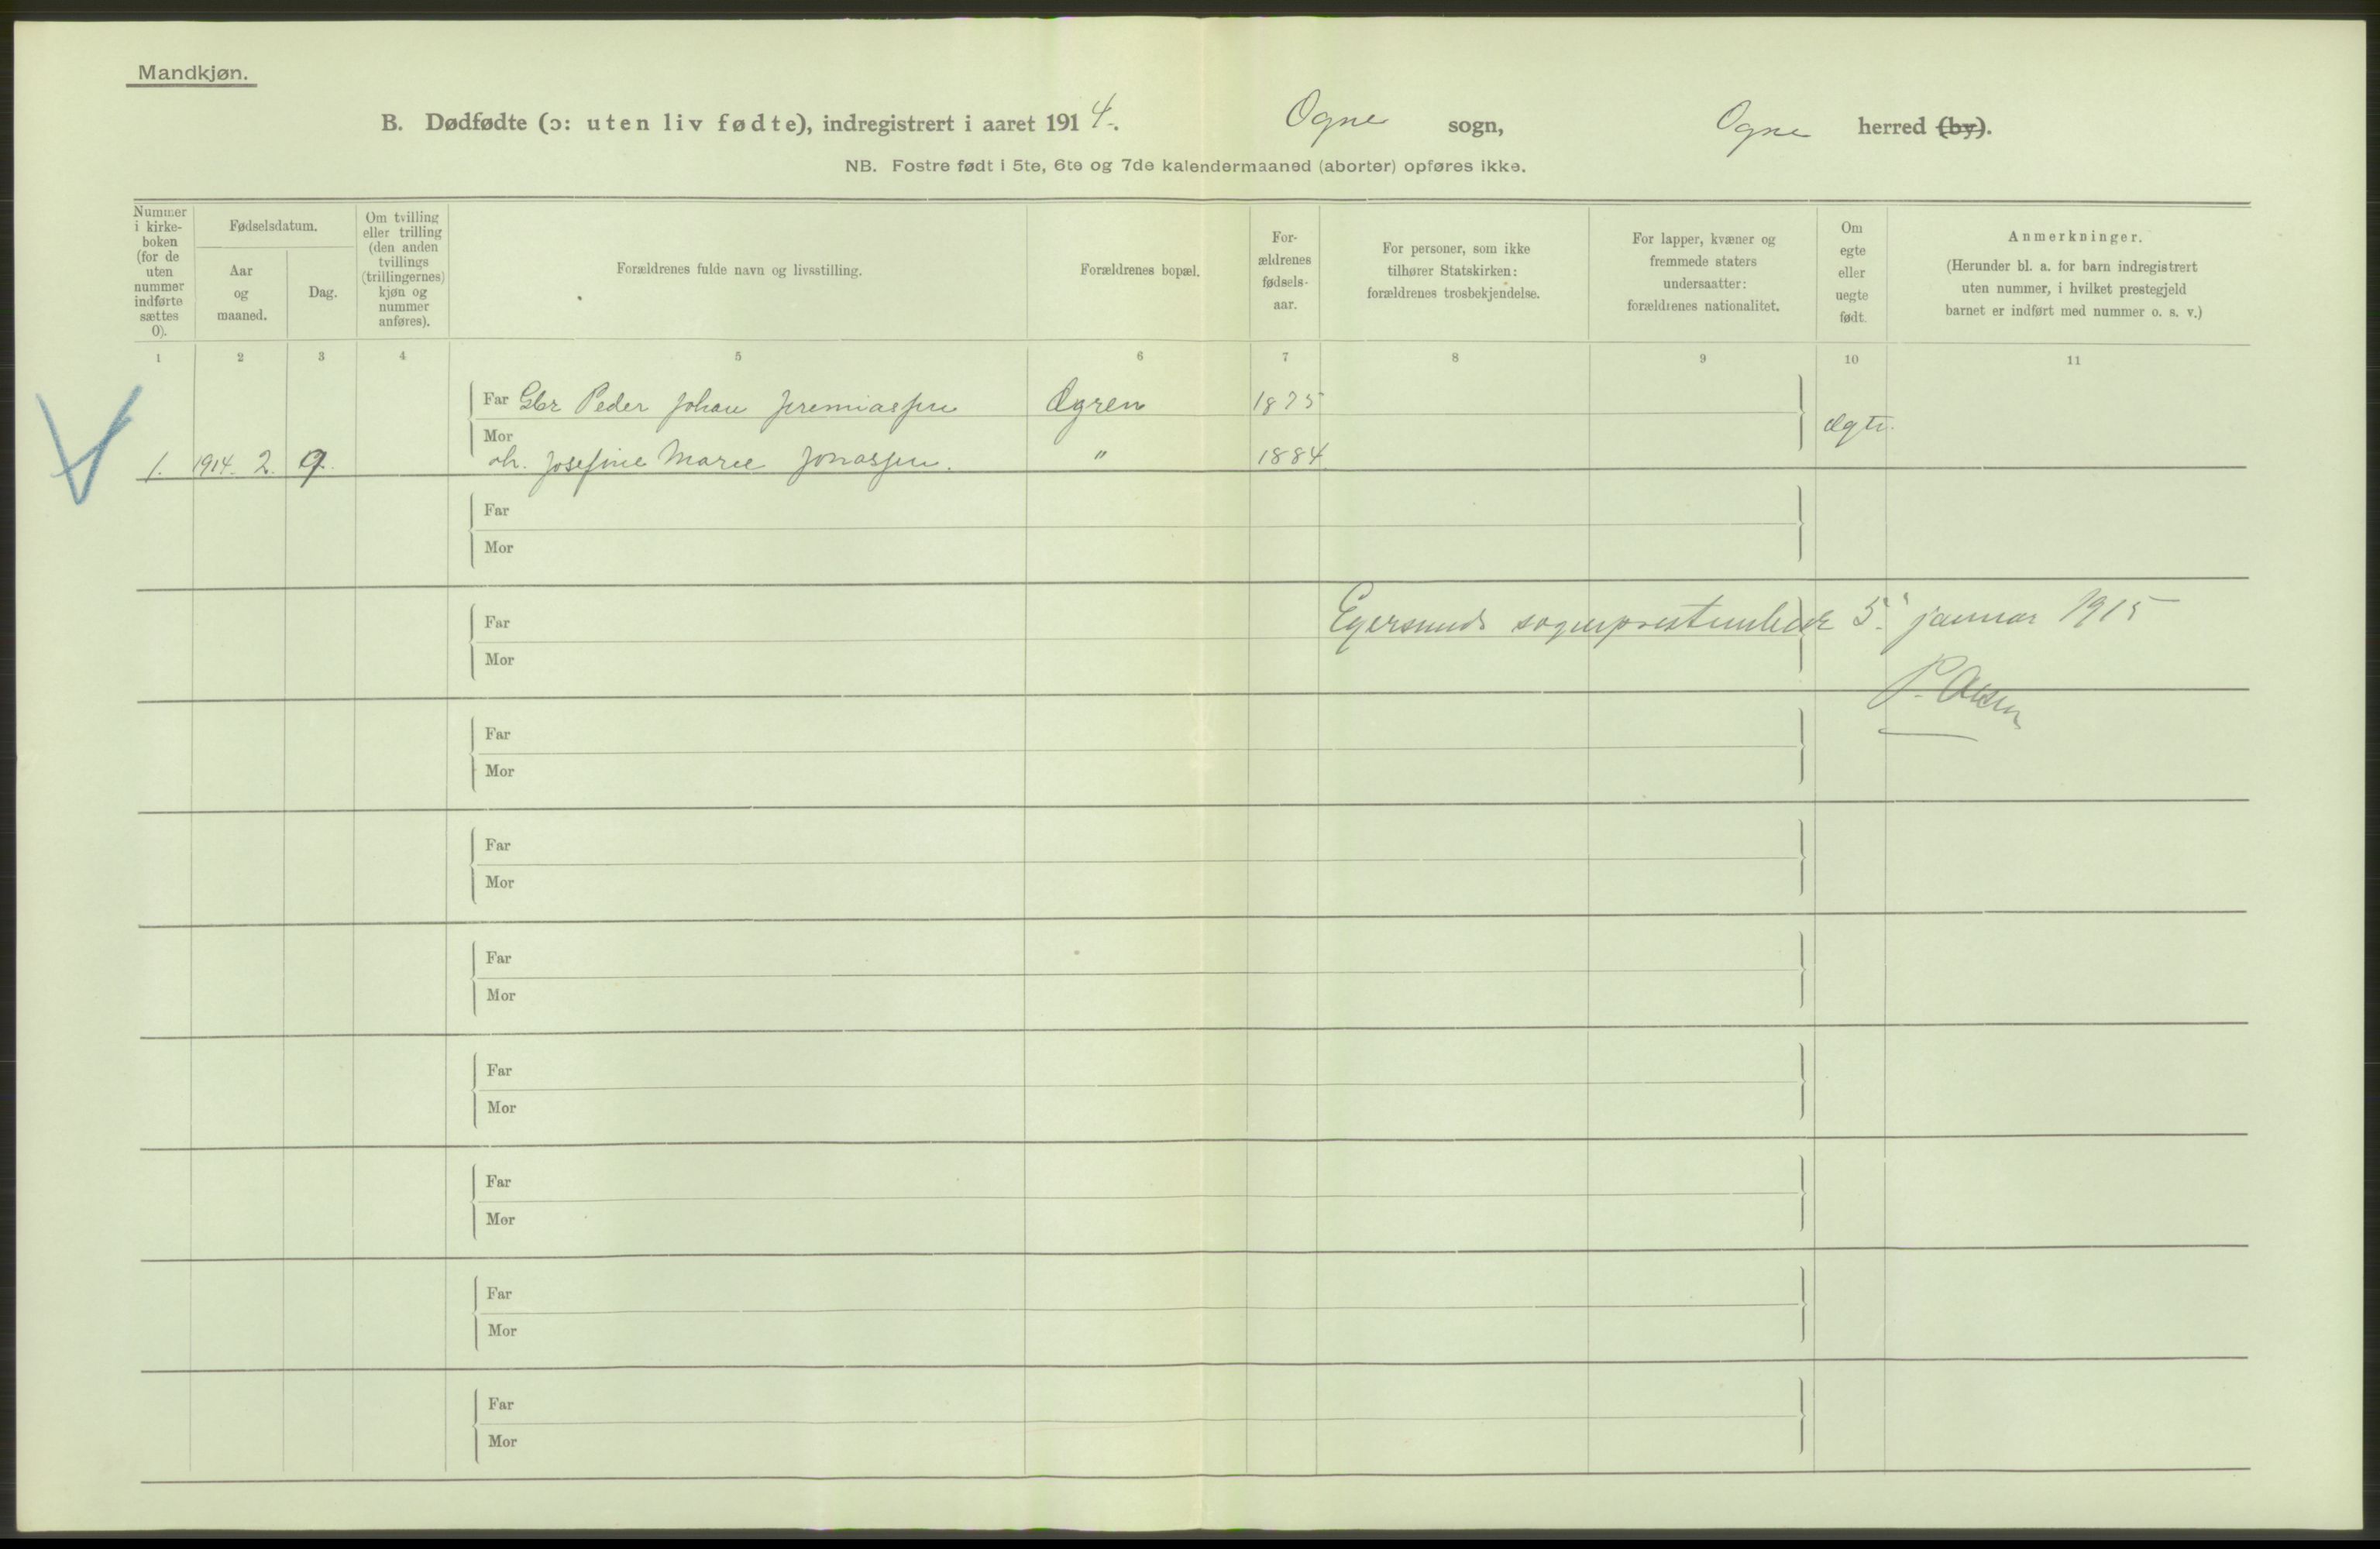 Mandkjøn.
B. Dødfødte (ɔ: uten liv fødte), indregistrert i aaret 1914. Ogne sogn, Ogne herred (by).
NB. Fostre født i 5te, 6te og 7de kalendermaaned (aborter) opføres ikke.
Nummer i kirke-boken (for de uten nummer indførte sættes 0).
Fødselsdatum.
Aar og maaned.
Dag.
Om tvilling eller trilling (den anden tvillings (trillingernes) kjøn og nummer anføres).
Forældrenes fulde navn og livsstilling.
Forældrenes bopæl.
For-ældrenes fødsels-aar.
For personer, som ikke tilhører Statskirken: forældrenes trosbekjendelse.
For lapper, kvæner og fremmede staters undersaatter: forældrenes nationalitet.
Om egte eller uegte født.
Anmerkninger.
(Herunder bl. a. for barn indregistrert uten nummer, i hvilket prestegjeld barnet er indført med nummer o. s. v.)
1 2 3 4 5 6 7 8 9 10 11
Far Gbr Peder Johan Jeremiassen Ogren 1875
Mor
1. 1914. 2. 9. Josefine Marie Jonassen. " 1884 ægte.
Far
Mor
Far Egersunds sogneprestembede 5. januar 1915
Mor
Far
Mor
Far
Mor
Far
Mor
Far
Mor
Far
Mor
Far
Mor
Far
Mor